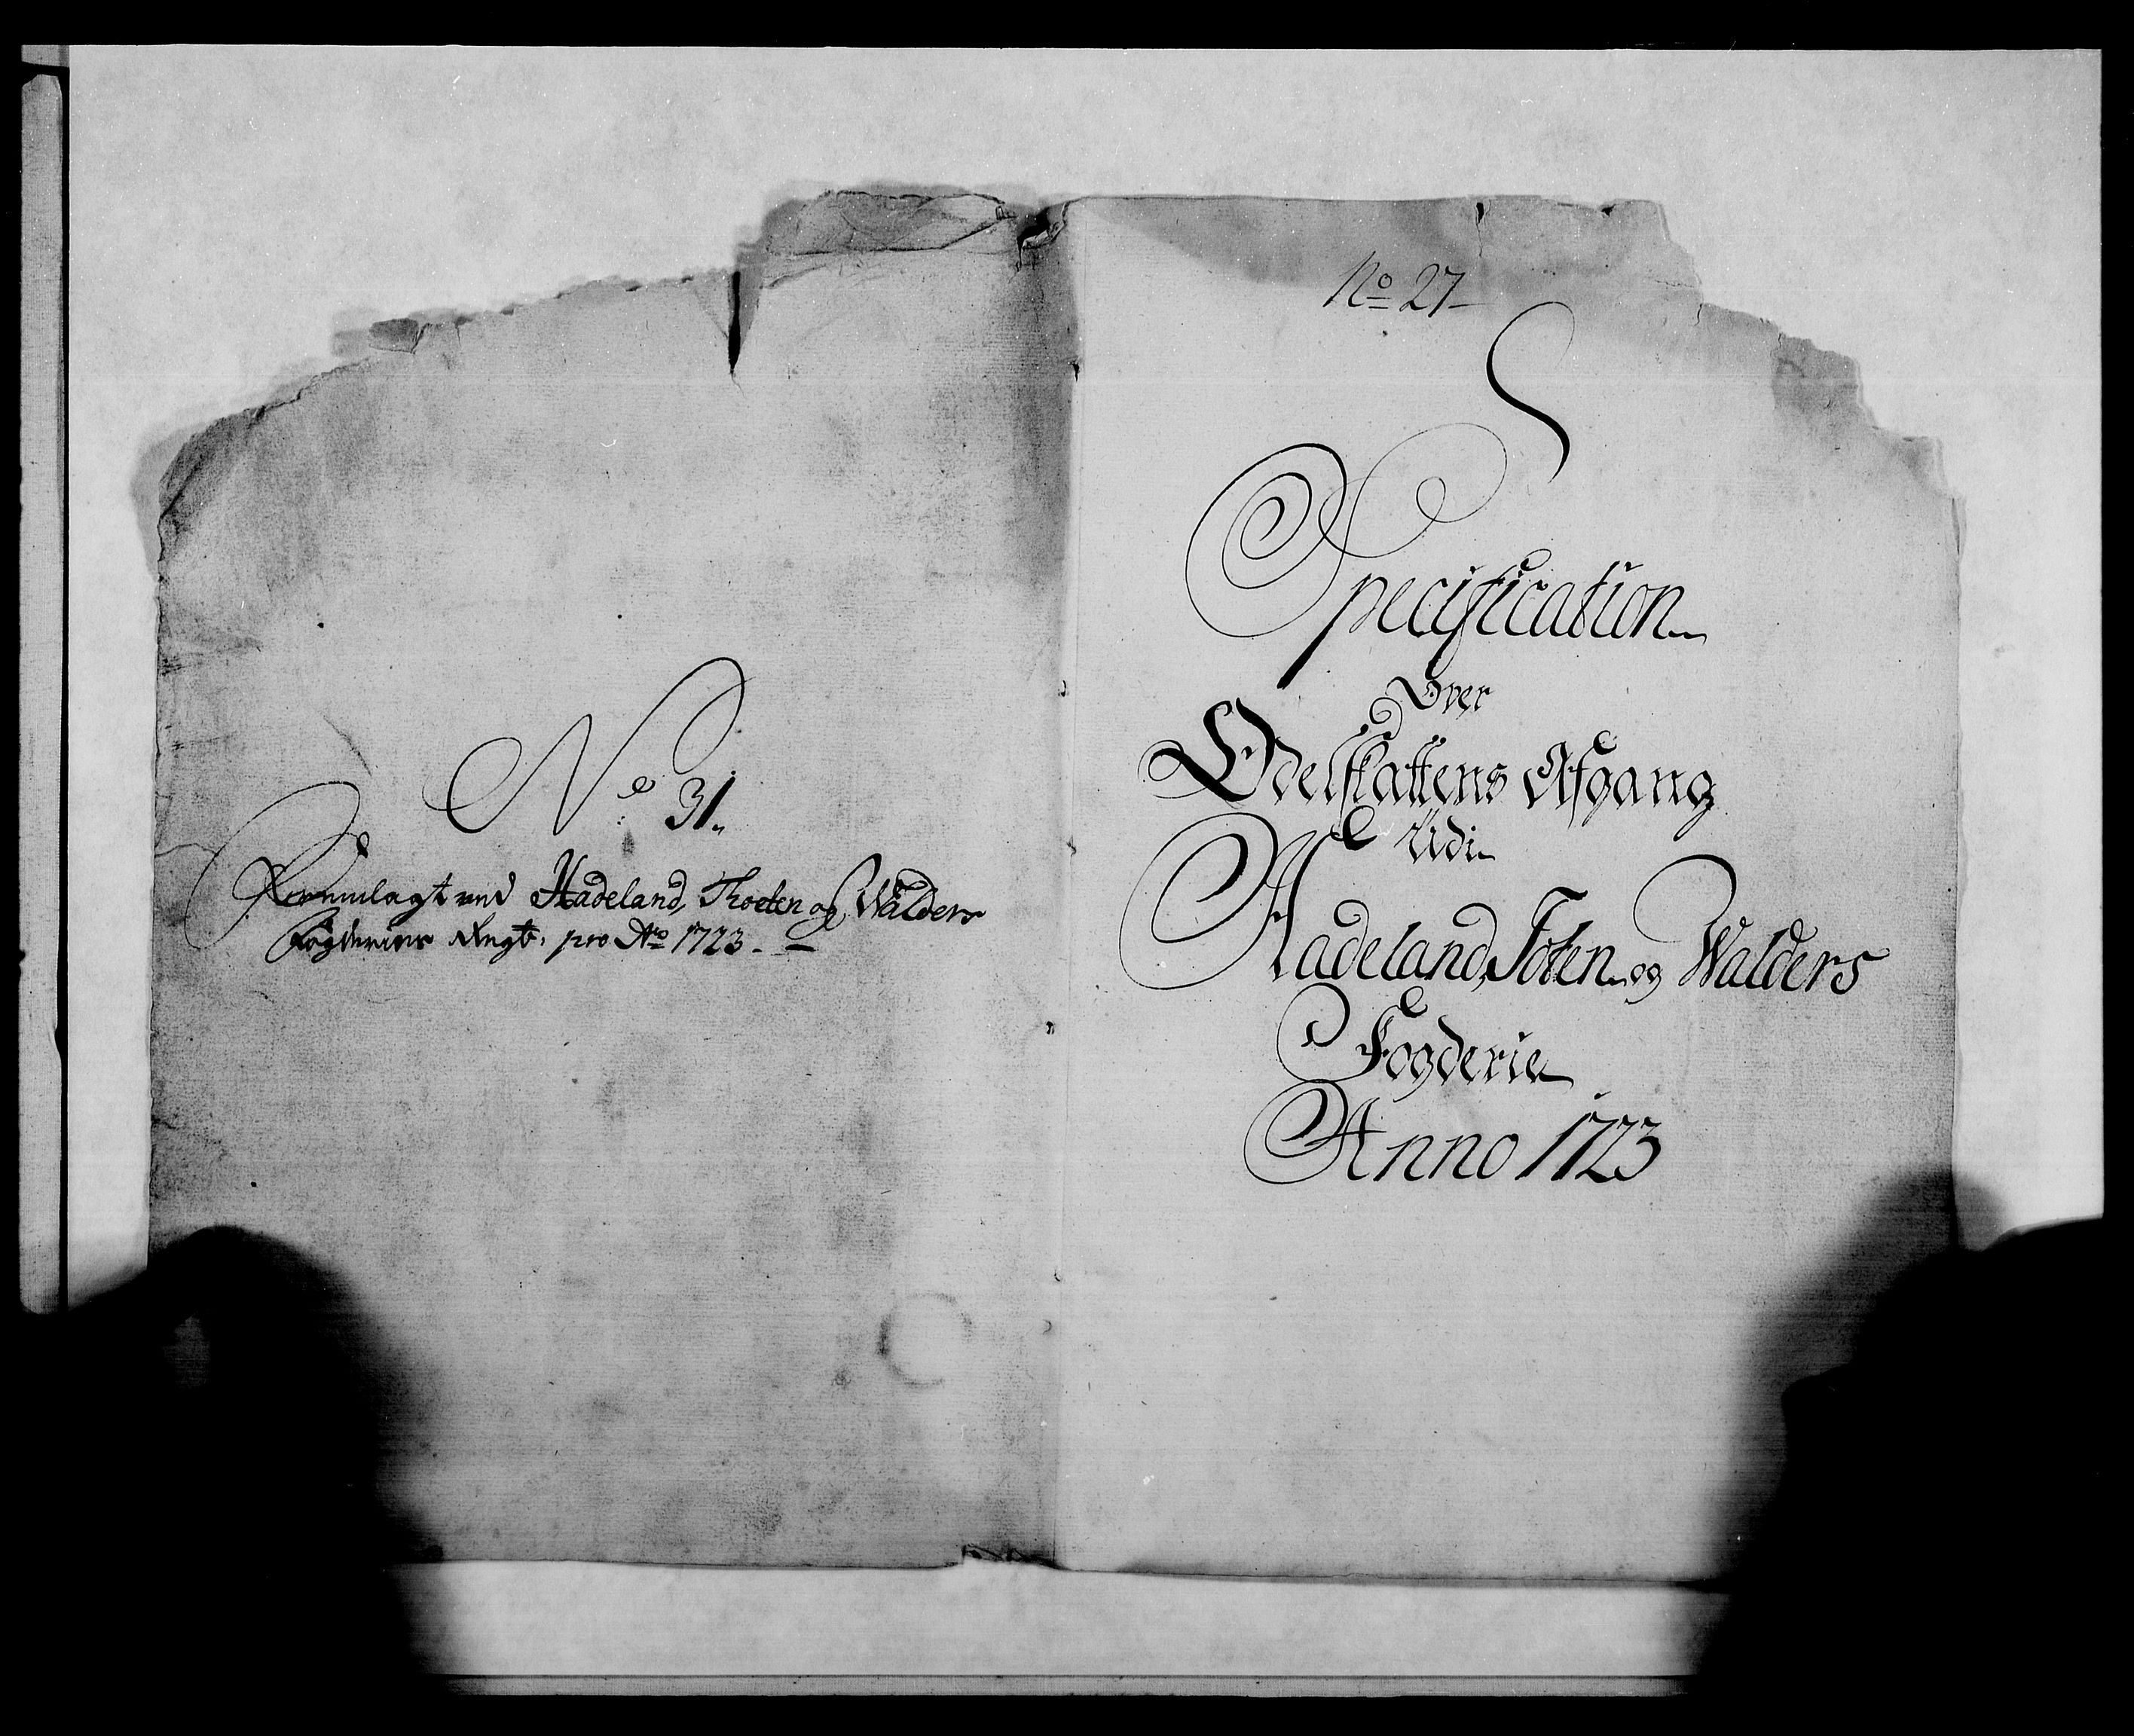 No 31.
Fremlagt ved Hadeland, Thoeten og Walders
Fogderies Regt: pro Ao 1723.
No 27
Specification
Over
Odelskattens Afgang
Udi
Hadeland, Toten og Walders
Fogderie
Anno 1723